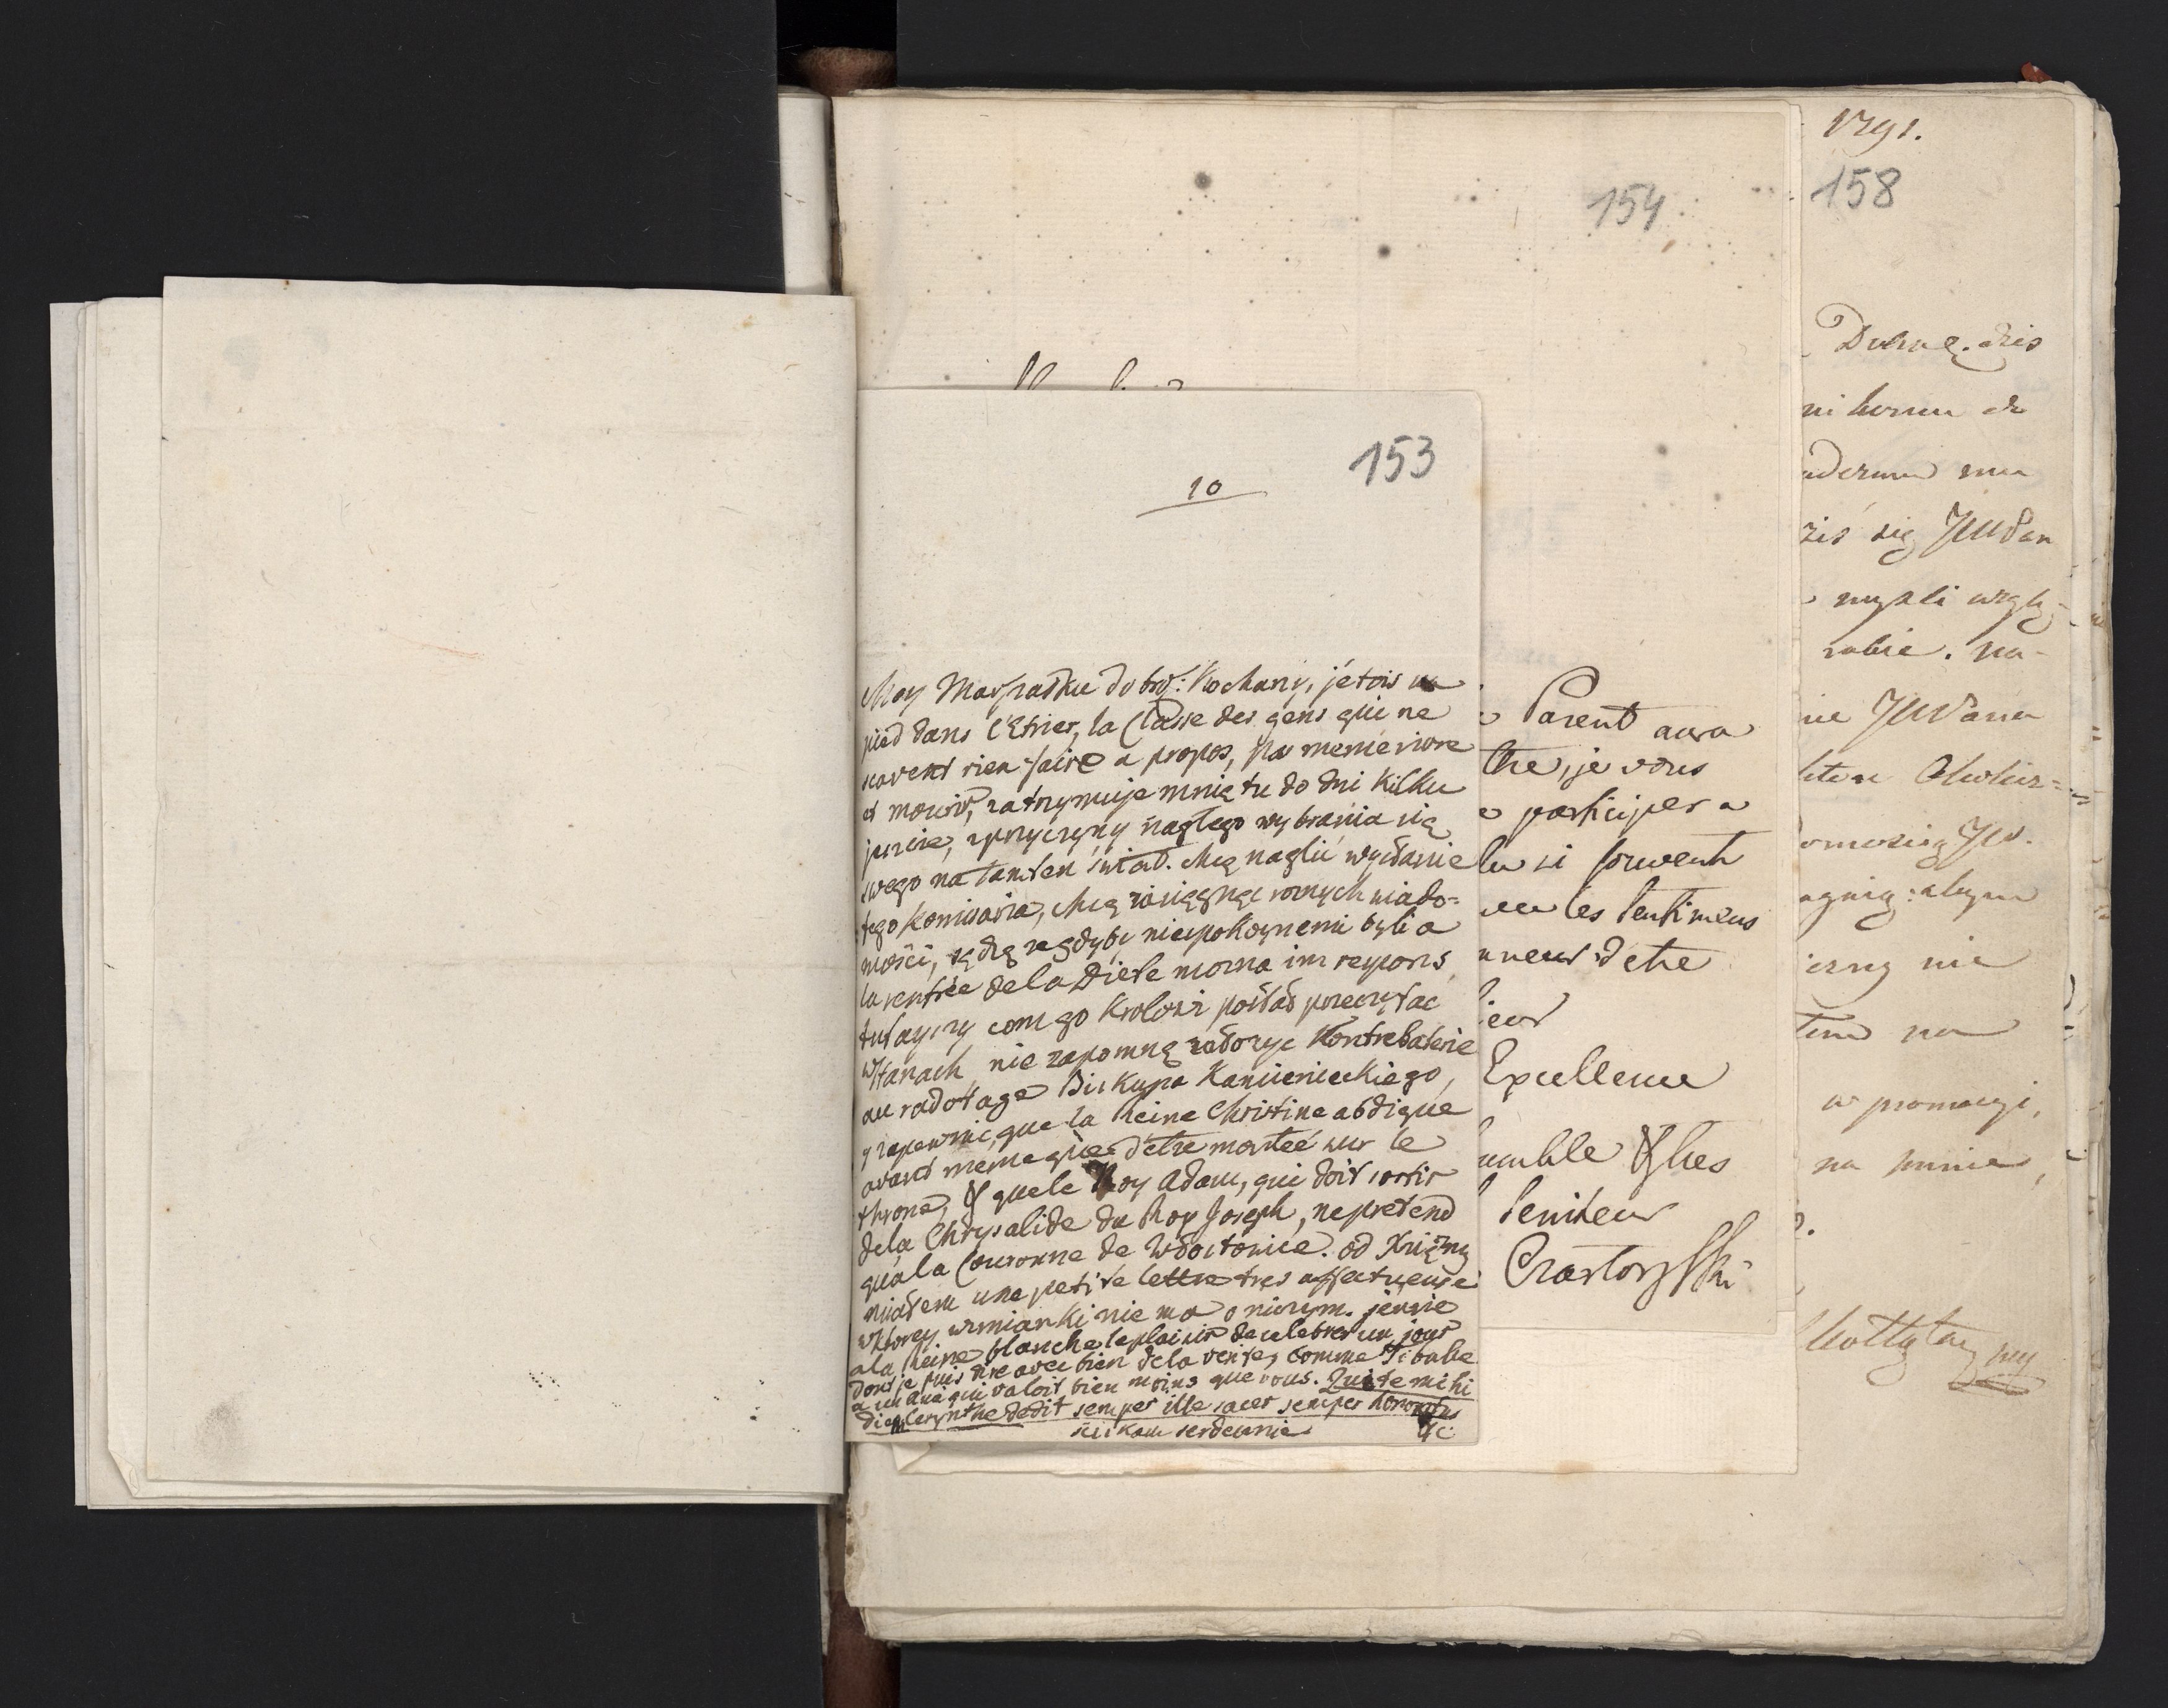 153
10
Moy Marszałku dobro: Kochany, j'étois un
pied dans l'Etrier, la Classe des gens qui ne
scavent rien faire a propos, pas meme vivre
et mourir, zatrzymuje mnię tu do dni kilku
jeszcze, z przyczyny nagłego wybrania się
swego na tamten świat. Chcą naglić wysłanie
tego Komissarza, chcą zasięgnąc roznych wiado=
mości, sądzą ze gdyby niespokoynemi byli a
la rentrée de la Diete mozna im respons
tutayszy com go Krolowi posłał przeczytac
w Stanach, nie zapomnę założyc Kontrebaterie
au radotage Biskupa Kamienieckiego,
y zapewnic, que la Reine Christine abdique
avant meme que d'etre montée sur le
throne, & que le Roy Adam, qui doit sortir
de la Chrysalide du Roy Joseph, ne pretend
qu'a la Couronne de Włostowice. od Xiężny
miałem une petite lettre tres affectueuse
w ktorey wzmianki nie ma o niczym. j'envie
a la Reine blanche le plaisir de celebrer un jour
dont je puis dire avec bien de la verité, comme Tibulle
a un ami qui valoit bien moins que vous. Qui te mihi
diem Cerynthe dedit semper ille sacer semper honoratus
ściskam serdecznie &c
154
Parent aura
tre, je vous
participer a
si souvent
les Sentimens
neur d'etre
eur
Excellence
umble & tres
Serviteur
Czartoryski
1791.
158
Dobrą. dziś
mu
ziś się JWPan
myśli wzglę-
robie. na-
ie JWPana
omoscią JW.
agnię: abym
iczny nie
na
w promocyi,
na
Kołłątay mp